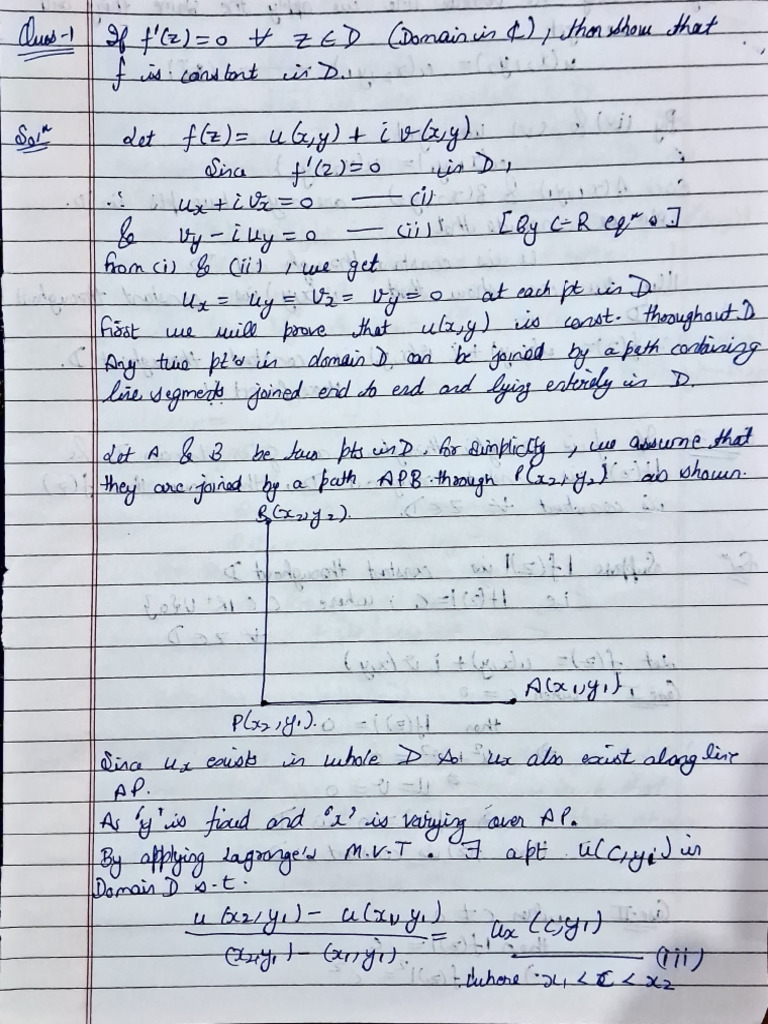 Ques-1 If f'(z)=0 ∀ z ∈ D (Domain in ₵), then show that
f is constant in D.
Solⁿ Let f(z)= u(x,y) + i v(x,y)
Since f'(z)=0 in D,
∴ ux + i vx = 0 — (i)
& vy - i uy = 0 — (ii) [By C-R eqⁿs]
from (i) & (ii), we get
ux = uy = vx = vy = 0 at each pt in D
first we will prove that u(x,y) is const. throughout D
Any two pt's in domain D can be joined by a path containing
line segments joined end to end and lying entirely in D.
Let A & B be two pts in D. for simplicity, we assume that
they are joined by a path APB through P(x2, y2) as shown.
B(x2,y2).
A(x1,y1).
P(x2,y1).
Since ux exists in whole D So, ux also exist along line
AP.
As 'y' is fixed and 'x' is varying over AP.
By applying Lagrange's M.V.T. ∃ a pt u(c,y1) in
Domain D s.t.
u(x2,y1) - u(x1,y1) = ux(c,y1)
(x2,y1) - (x1,y1). — (iii)
where x1 < c < x2